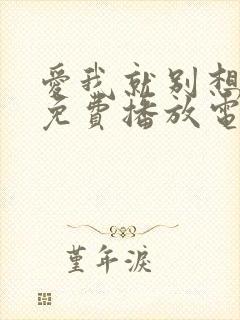 愛我就別想
免費播放電
堇年淚